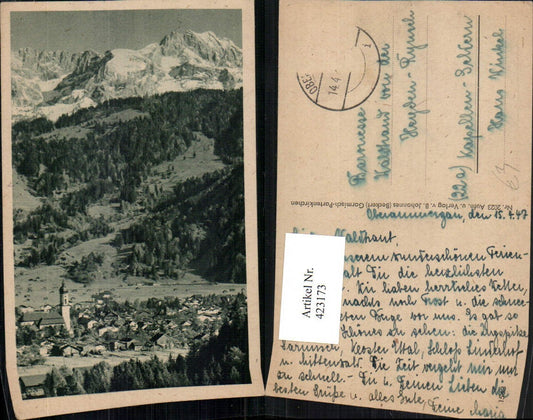 OBER
14.4
Baronesse
Waldthaut von der
Heyden-Rynsch
(22a) Kapellen-Geldern
Haus Winkel
Nr. 2023 Aufn. u. Verlag v. B. Johannes (Becker) Garmisch-Partenkirchen
Oberammergau, den 15.4.47
Waldhaut,
unserem wunderschönen Ferien-
alt Dir die herzlichsten
Wir haben herrliches Wetter,
nachts noch Frost u. die schnee-
Berge vor uns. Es gab so
Schönes zu sehen: die Zugspitze
Kloster Ettal, Schloß Linderhof
u. Mittenwald. Die Zeit vergeht mir viel
zu schnell. - Dir u. Deinen Lieben die
besten Grüße u. alles Gute, Deine Maria
Artikel Nr.
423173